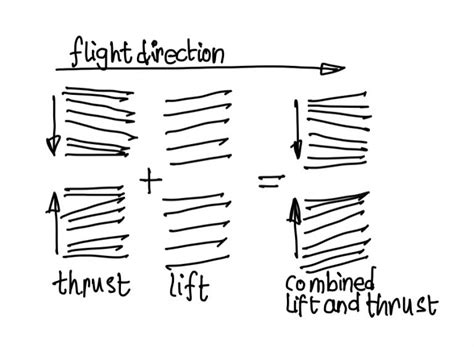 flight direction
+ =
thrust lift combined
lift and thrust